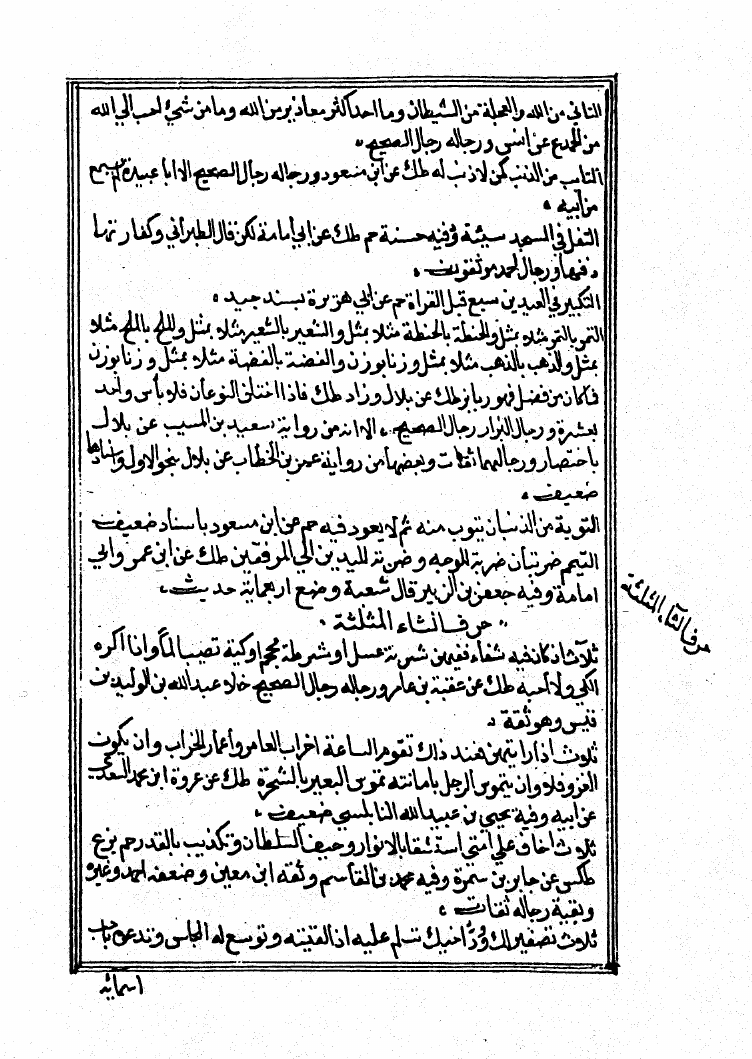 التاني من الله والعجلة من الشيطان وما احد اكثر معاذير من الله وما من شيئ احب الي الله
من الحمد ع عن انس ورجاله رجال الصحيح
التائب من الذنب كمن لا ذنب له طك عن ابن مسعود ورجاله رجال الصحيح الا ابا عبيدة لم يسمع
من ابيه
التفل في المسجد سيئة وفيه حسنة حم طك عن ابي أمامة لكن قال الطبراني وكفارتها
دفنها ورجال احمد موثقون
التكبير في العيدين سبع قبل القراة حم عن ابي هريرة بسند جيد
التمر بالتمر مثلا بمثل والحنطة بالحنطة مثلا بمثل والشعير بالشعير مثلا بمثل والملح بالملح مثلا
بمثل والذهب بالذهب مثلا بمثل وزنا بوزن والفضة بالفضة مثلا بمثل وزنا بوزن
فما كان من فضل فهو ربا بز طك عن بلال وزاد طك فاذا اختلف النوعان فلا بأس واحد
بعشرة ورجال البزار رجال الصحيح الا انه من رواية سعيد بن المسيب عن بلال
باختصار ورجالهما ثقات وبعضها من رواية عمر بن الخطاب عن بلال بنحو الاول واسنادها
ضعيف
التوبة من الذنب ان يتوب منه ثم لا يعود فيه حم عن ابن مسعود باسناد ضعيف
التيمم ضربتان ضربة للوجه وضربة لليدين الي المرفقين طك عن ابن عمر وابي
امامة وفيه جعفر بن الزبير قال شعبة وضع اربعماية حديث
حرف الثاء المثلثة
حرف الثآء المثلثة
ثلاث ان كان فيه شفاء ففيهن شربة عسل او شرطة محجم او كية تصيب الماً وانا اكره
الكي ولا احبه طك عن عقبة بن عامر ورجاله رجال الصحيح خلا عبد الله بن الوليد بن
قيس وهو ثقة
ثلاث اذا رايتهن فعند ذاك تقوم الساعة اخراب العامر وأعمار الخراب وان يكون
الغزو فداء وان يتمرس الرجل بامانته تمرس البعير بالشجرة طك عن عروة ابن محمد السعدي
عن ابيه وفيه يحيي بن عبيد الله النابلسي ضعيف
ثلاث اخاف علي امتي استسقا بالانواء وحيف السلطان وتكذيب بالقدر حم بز ع
طكس عن جابر بن سمرة وفيه محمد بن القاسم وثقه ابن معين وضعفه احمد وغيره
وبقية رجاله ثقات
ثلاث تصفين لك وُدَّ اخيك تسلم عليه اذا لقيته وتوسع له المجلس وتدعوه باحب
اسمائه